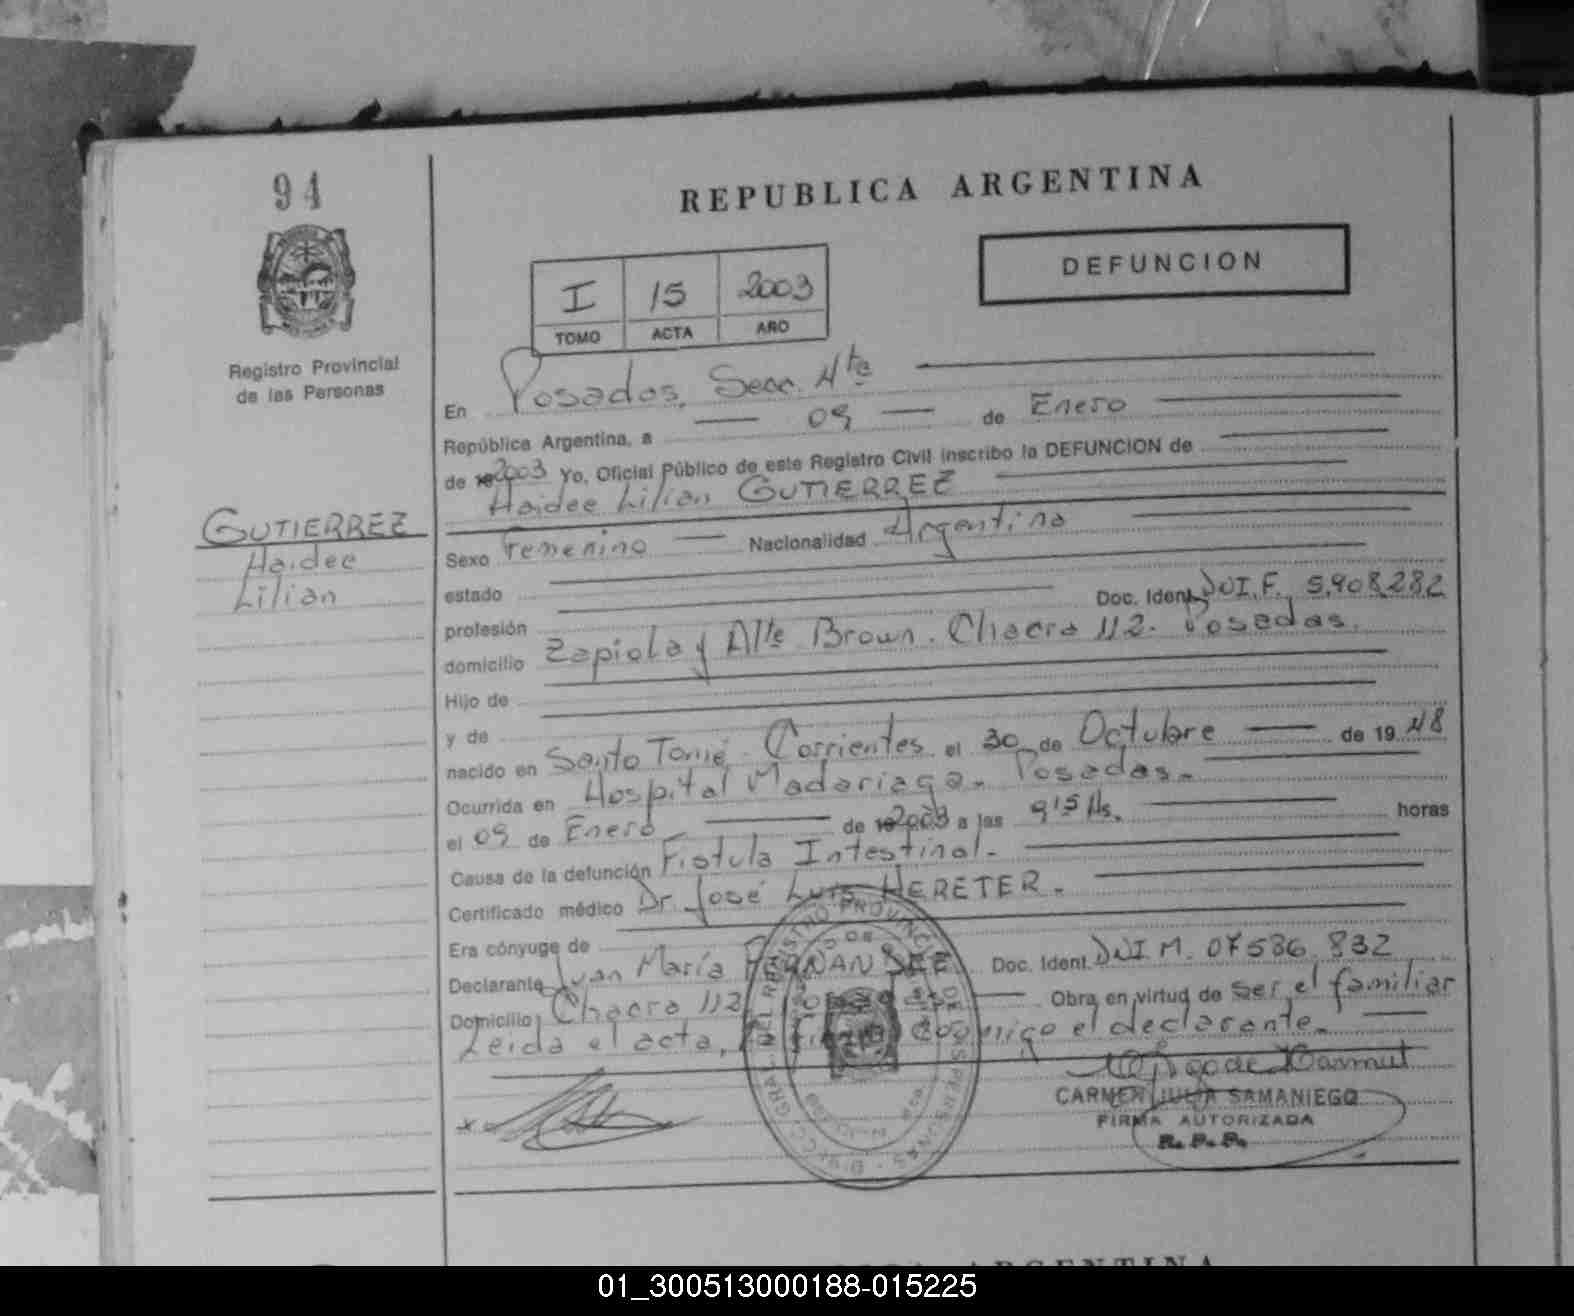 94
REPUBLICA ARGENTINA
DEFUNCION
I 15 2003
TOMO ACTA AÑO
Registro Provincial
de las Personas
En Posadas, Secc. 4ta
República Argentina, a 09 de Enero
de 2003 Yo, Oficial Público de este Registro Civil inscribo la DEFUNCION de
Haidee Lilian GUTIERREZ
GUTIERREZ
Haidee
Lilian
Sexo Femenino Nacionalidad Argentina
estado
profesión Doc. Ident. DNI.F. 5.908.282
domicilio Zapiola y Alte Brown. Chacra 112. Posadas.
Hijo de
y de
nacido en Santo Tomé. Corrientes el 30 de Octubre de 19 48
Ocurrida en Hospital Madariaga. Posadas.
el 09 de Enero de 2003 a las 9 15 Hs. horas
Causa de la defunción Fistula Intestinal.
Certificado médico Dr. José Luis HERETER.
Era cónyuge de
Declarante Juan María Doc. Ident. DNI M. 07586.832
Domicilio Chacra 112 Posadas Obra en virtud de ser el familiar
Leida el acta, la firma conmigo el declarante.
CARMEN JULIA SAMANIEGO
FIRMA AUTORIZADA
R. P. P.
REPUBLICA ARGENTINA
01_300513000188-015225